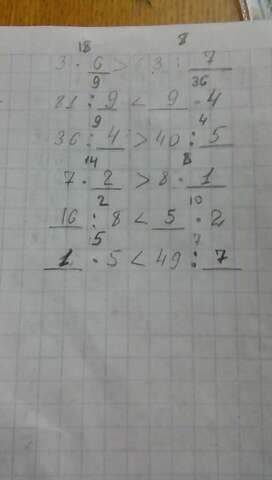 18 8
3 · 6 > 63 : 7
9 36
81 : 9 < 9 · 4
9 4
36 : 4 > 40 : 5
14 8
7 · 2 > 8 · 1
2 10
16 : 8 < 5 · 2
5 7
1 · 5 < 49 : 7